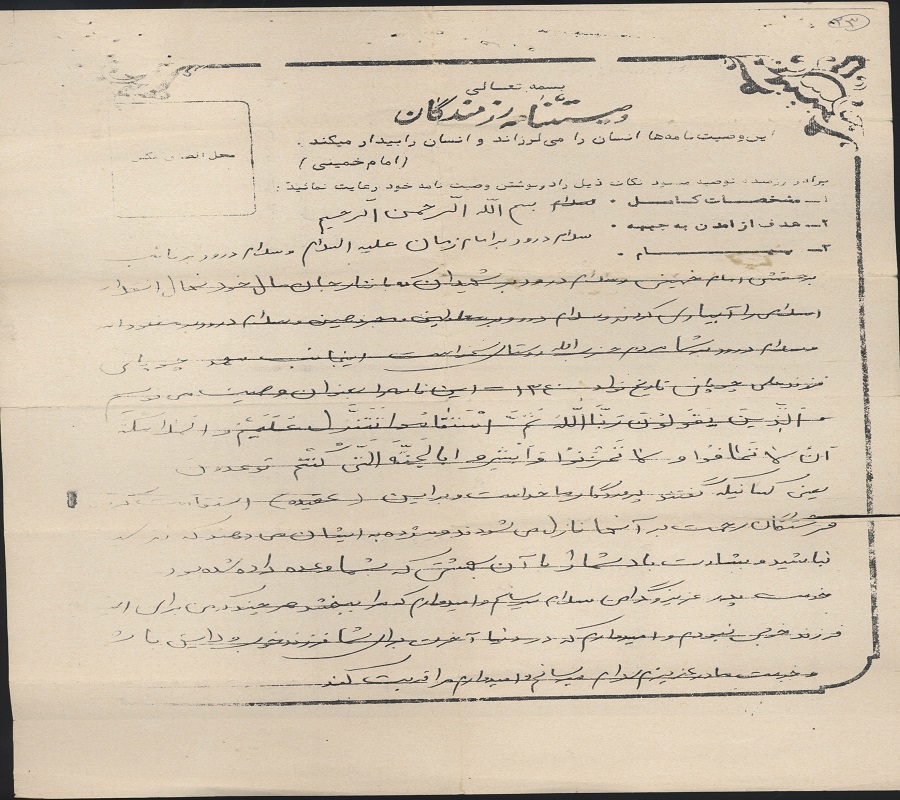 ۲۳
بسمه تعالی
وصیتنامه رزمندگان
این وصیت نامه‌ها انسان را می‌لرزاند و انسان را بیدار میکند.
(امام خمینی)
محل الصاق عکس
برادر رزمنده توصیه میشود نکات ذیل را در نوشتن وصیت نامه خود رعایت نمائید:
۱ـ مشخصات کامل.
۲ـ هدف از آمدن به جبهه.
۳ـ پیام.
بسم الله الرحمن الرحیم
سلام درود بر امام زمان علیه السلام و سلام درود بر نائب
بر حقش امام خمینی و سلام درود بر شهیدان که با نثار جان مال خود نهال
اسلامی را آبیاری کردند و سلام درود بر معلولین مجروحین و سلام درود بر
و سلام درود بر شما مردم حزب الله اینجانب
فرزند علی تاریخ تولد ۱۳۴۰ این نامه را بعنوان وصیت می نویسم
الَّذینَ یَقولونَ رَبُّنا اللهُ ثُمَّ اسْتَقاموا تَتَنَزَّلُ عَلَیْهِمْ
اَنْ لا تَخافُوا و لا تَحْزَنُوا وَ اَبْشِرو ابالجَنَّهِ الَّتی کُنْتُمْ توعدون
یعنی کسانیکه گفتند پروردگار ما خداست و بر این (عقیده) استقامت
فرشتگان رحمت بر آنها نازل می شوند و مژده به ایشان می دهند که
نباشید و بشارت باد شما را با آن بهشتی که شما وعده داده شده بود
خدمت پدر عزیز و گرامی سلام میرسانم و امیدوارم که مرا ببخشد هر چند که من برای
فرزند خوبی نبودم و امیدوارم که در دنیا آخرت برای شما فرزند خوب
و خدمت مادر عزیزم سلام میرسانم و امیدوارم مرا کند